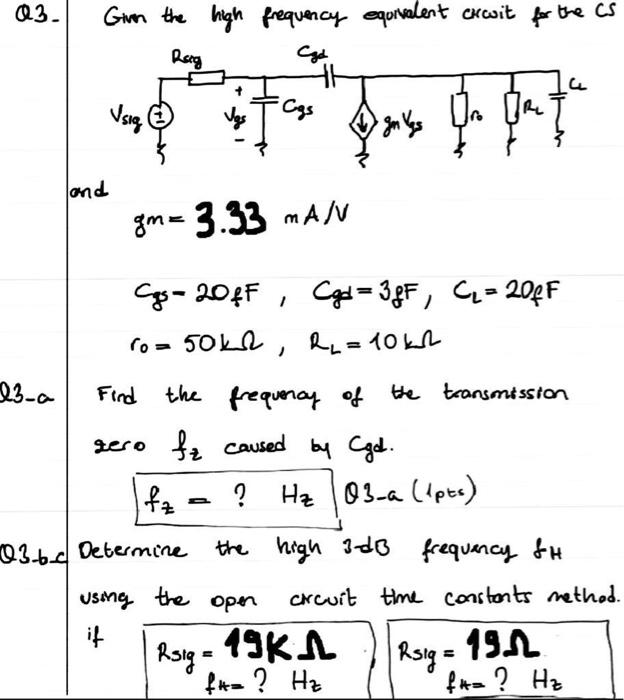 Q3- Given the high frequency equivalent circuit for the CS
Rsig
Cgd
Vsig
+
Vgs
-
Cgs
gmVgs
ro
RL
CL
and
gm = 3.33 mA/V
Cgs = 20fF , Cgd = 3fF , CL = 20fF
ro = 50kΩ , RL = 10kΩ
Q3-a Find the frequency of the transmission
zero fz caused by Cgd.
fz = ? Hz Q3-a (1pts)
Q3-b-c Determine the high 3-dB frequency fH
using the open circuit time constants method.
if Rsig = 19KΩ Rsig = 19Ω
fH = ? Hz fH = ? Hz